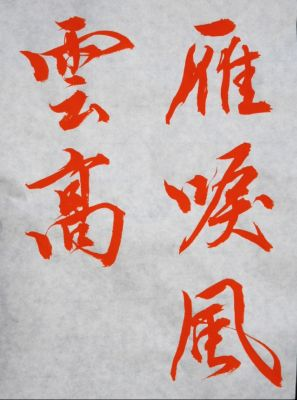 雁唳風
雲高